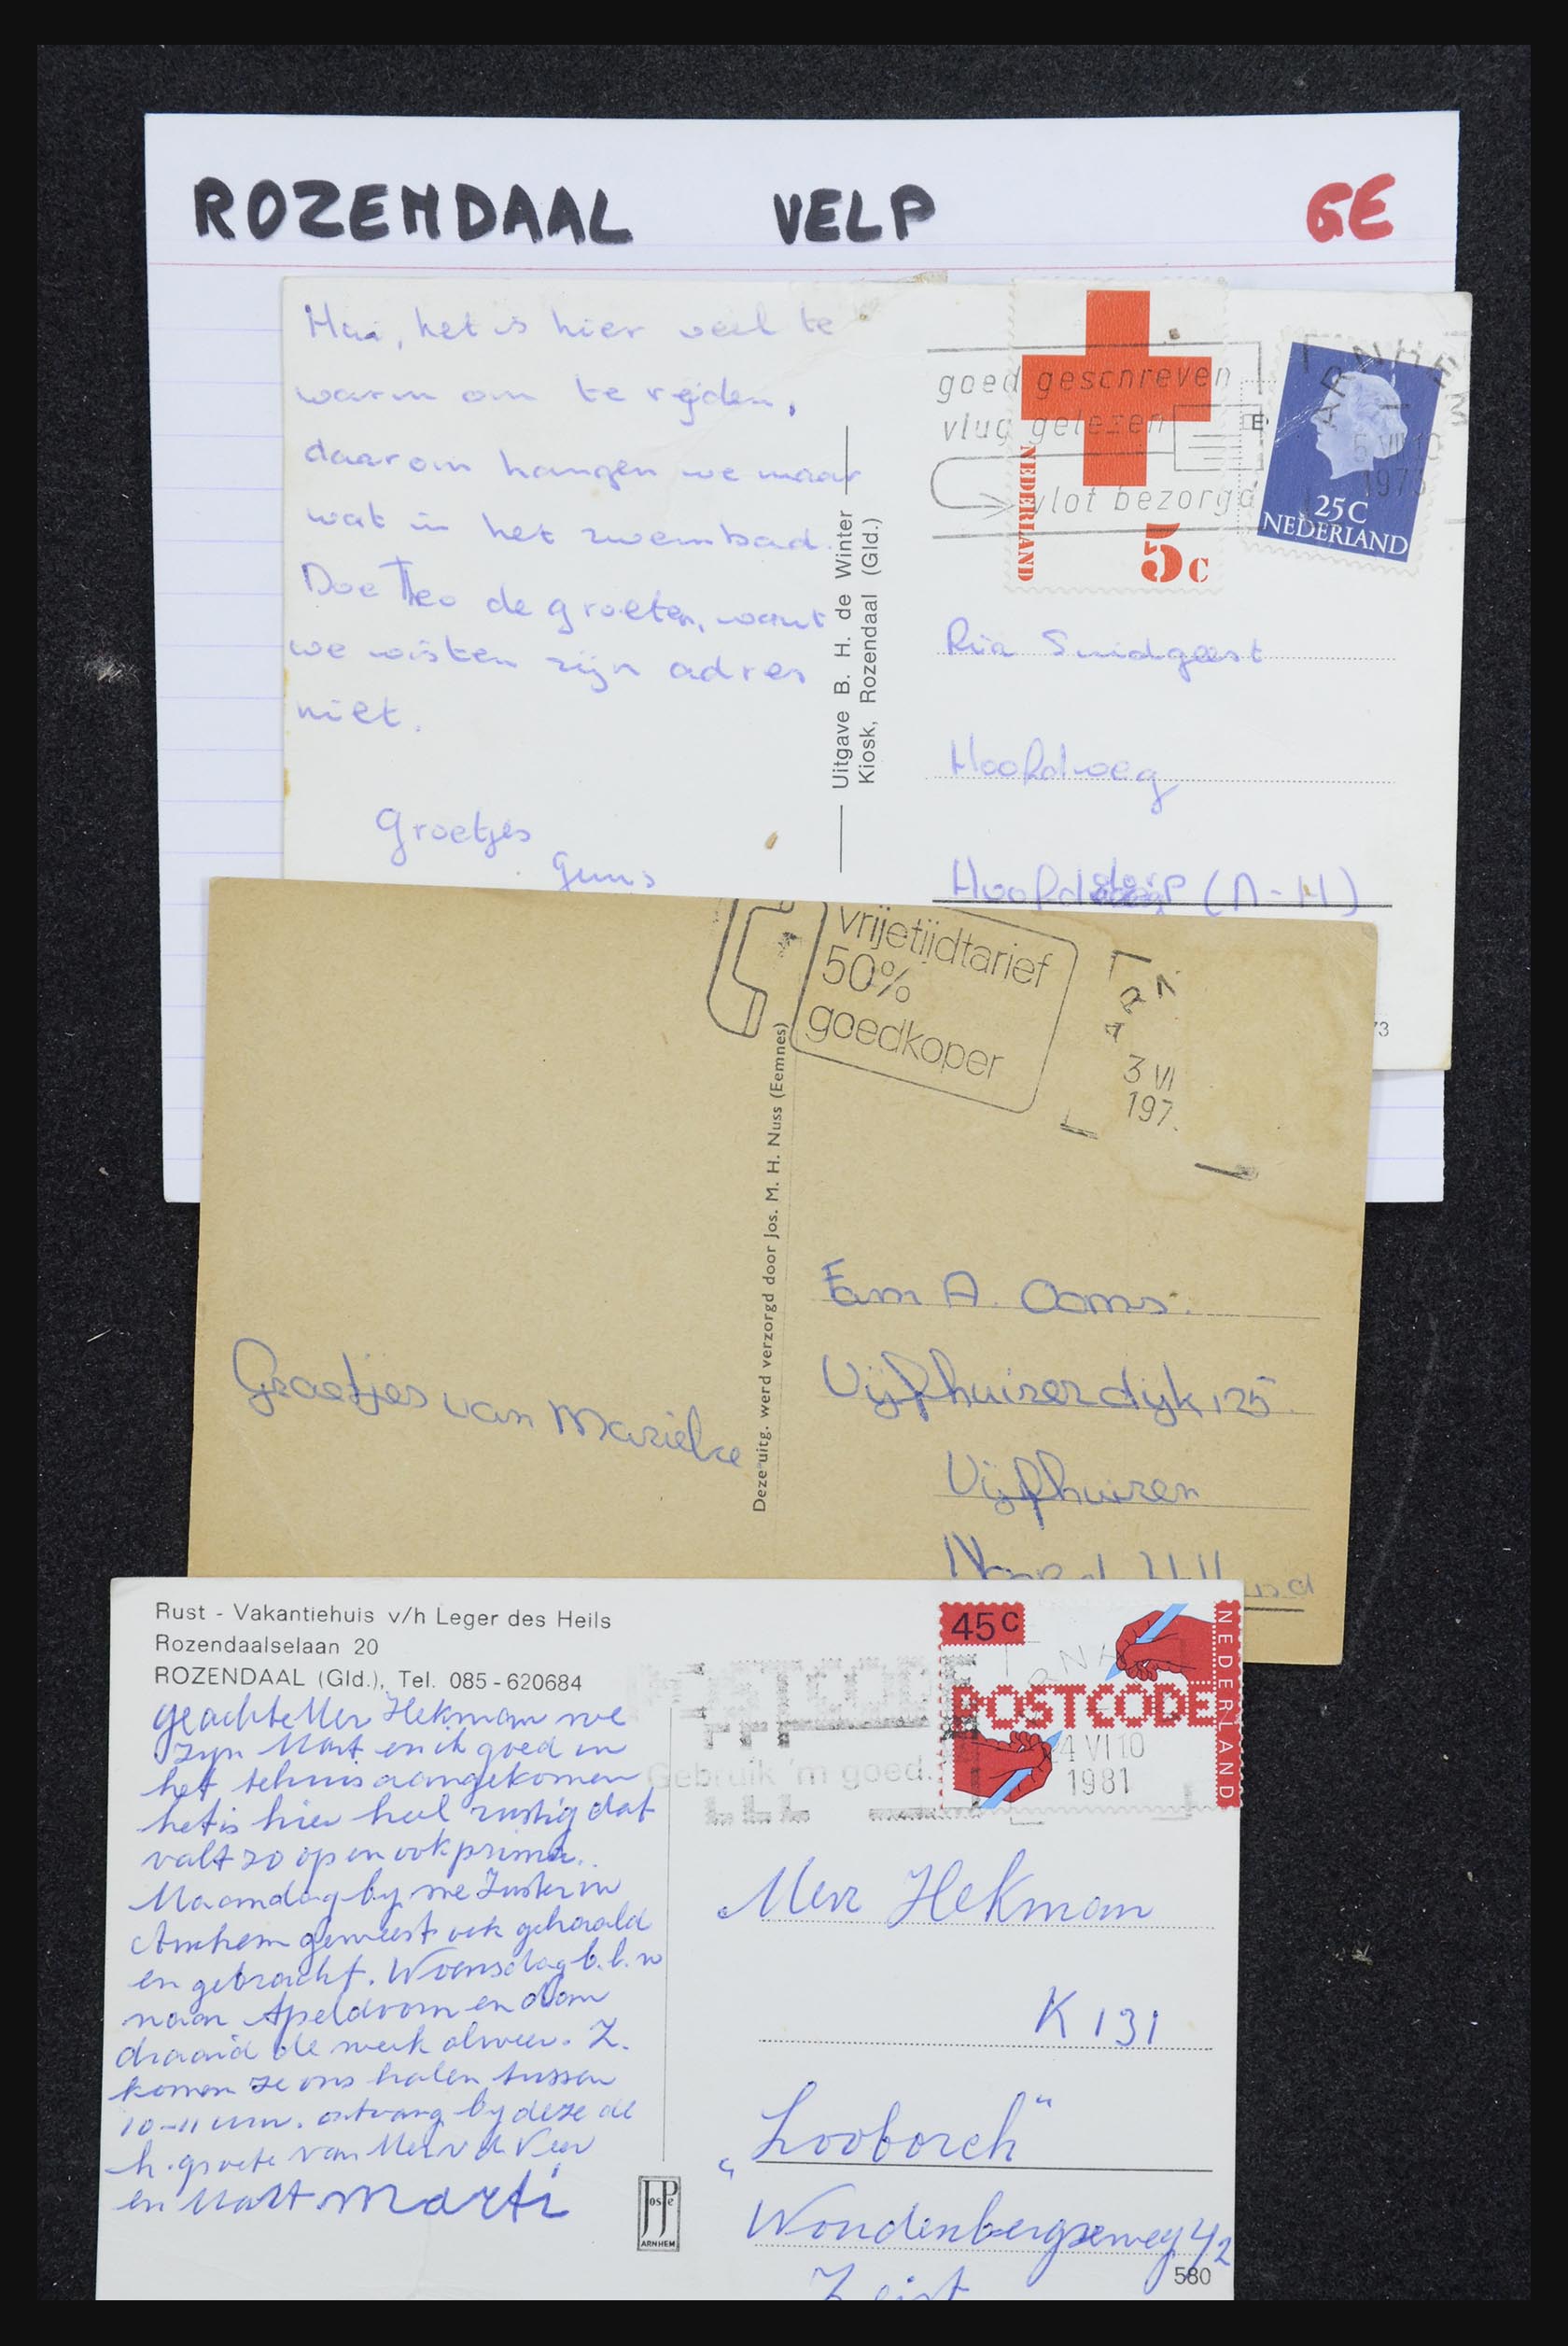 ROZENDAAL VELP GE
Hai, het is hier veel te
warm om te rijden,
daarom hangen we maar
wat in het zwembad.
Doe Theo de groeten, want
we wisten zijn adres
niet.
Groetjes
Guus
Uitgave B. H. de Winter
Kiosk, Rozendaal (Gld.)
goed geschreven
vlug gelezen
vlot bezorgd
NEDERLAND
5c
E
ARNHEM
5 VII 10
1973
25C
NEDERLAND
Ria Suidgeest
Hoofdweg
Hoofddorp (N-H)
73
vrijetijdtarief
50%
goedkoper
3 VI
197
Deze uitg. werd verzorgd door Jos. M. H. Nuss (Eemnes)
Groetjes van Marielke
Fam A. Ooms.
Vijfhuizerdijk 125
Vijfhuizen
Rust - Vakantiehuis v/h Leger des Heils
Rozendaalselaan 20
ROZENDAAL (Gld.), Tel. 085-620684
geachte Mevr Hekman we
zyn Mart en ik goed in
het tehuis aangekomen
het is hier heel rustig dat
valt zo op en ook prima.
Maandag by me Zuster in
Arnhem geweest ook gehaald
en gebracht. Woensdag
naar Apeldoorn en dan
draaid de week alweer. Z.
komen ze ons halen tussen
10-11 uur. ontvang by deze de
h. groete van Mevr v d Veer
en Mart Marti
POSTCODE
Gebruik 'm goed.
45c
POSTCODE
NEDERLAND
4 VI 10
1981
Mevr Hekman
K 131
"Looborch"
Woudenbergseweg 42
Zeist
580
JosPé
ARNHEM